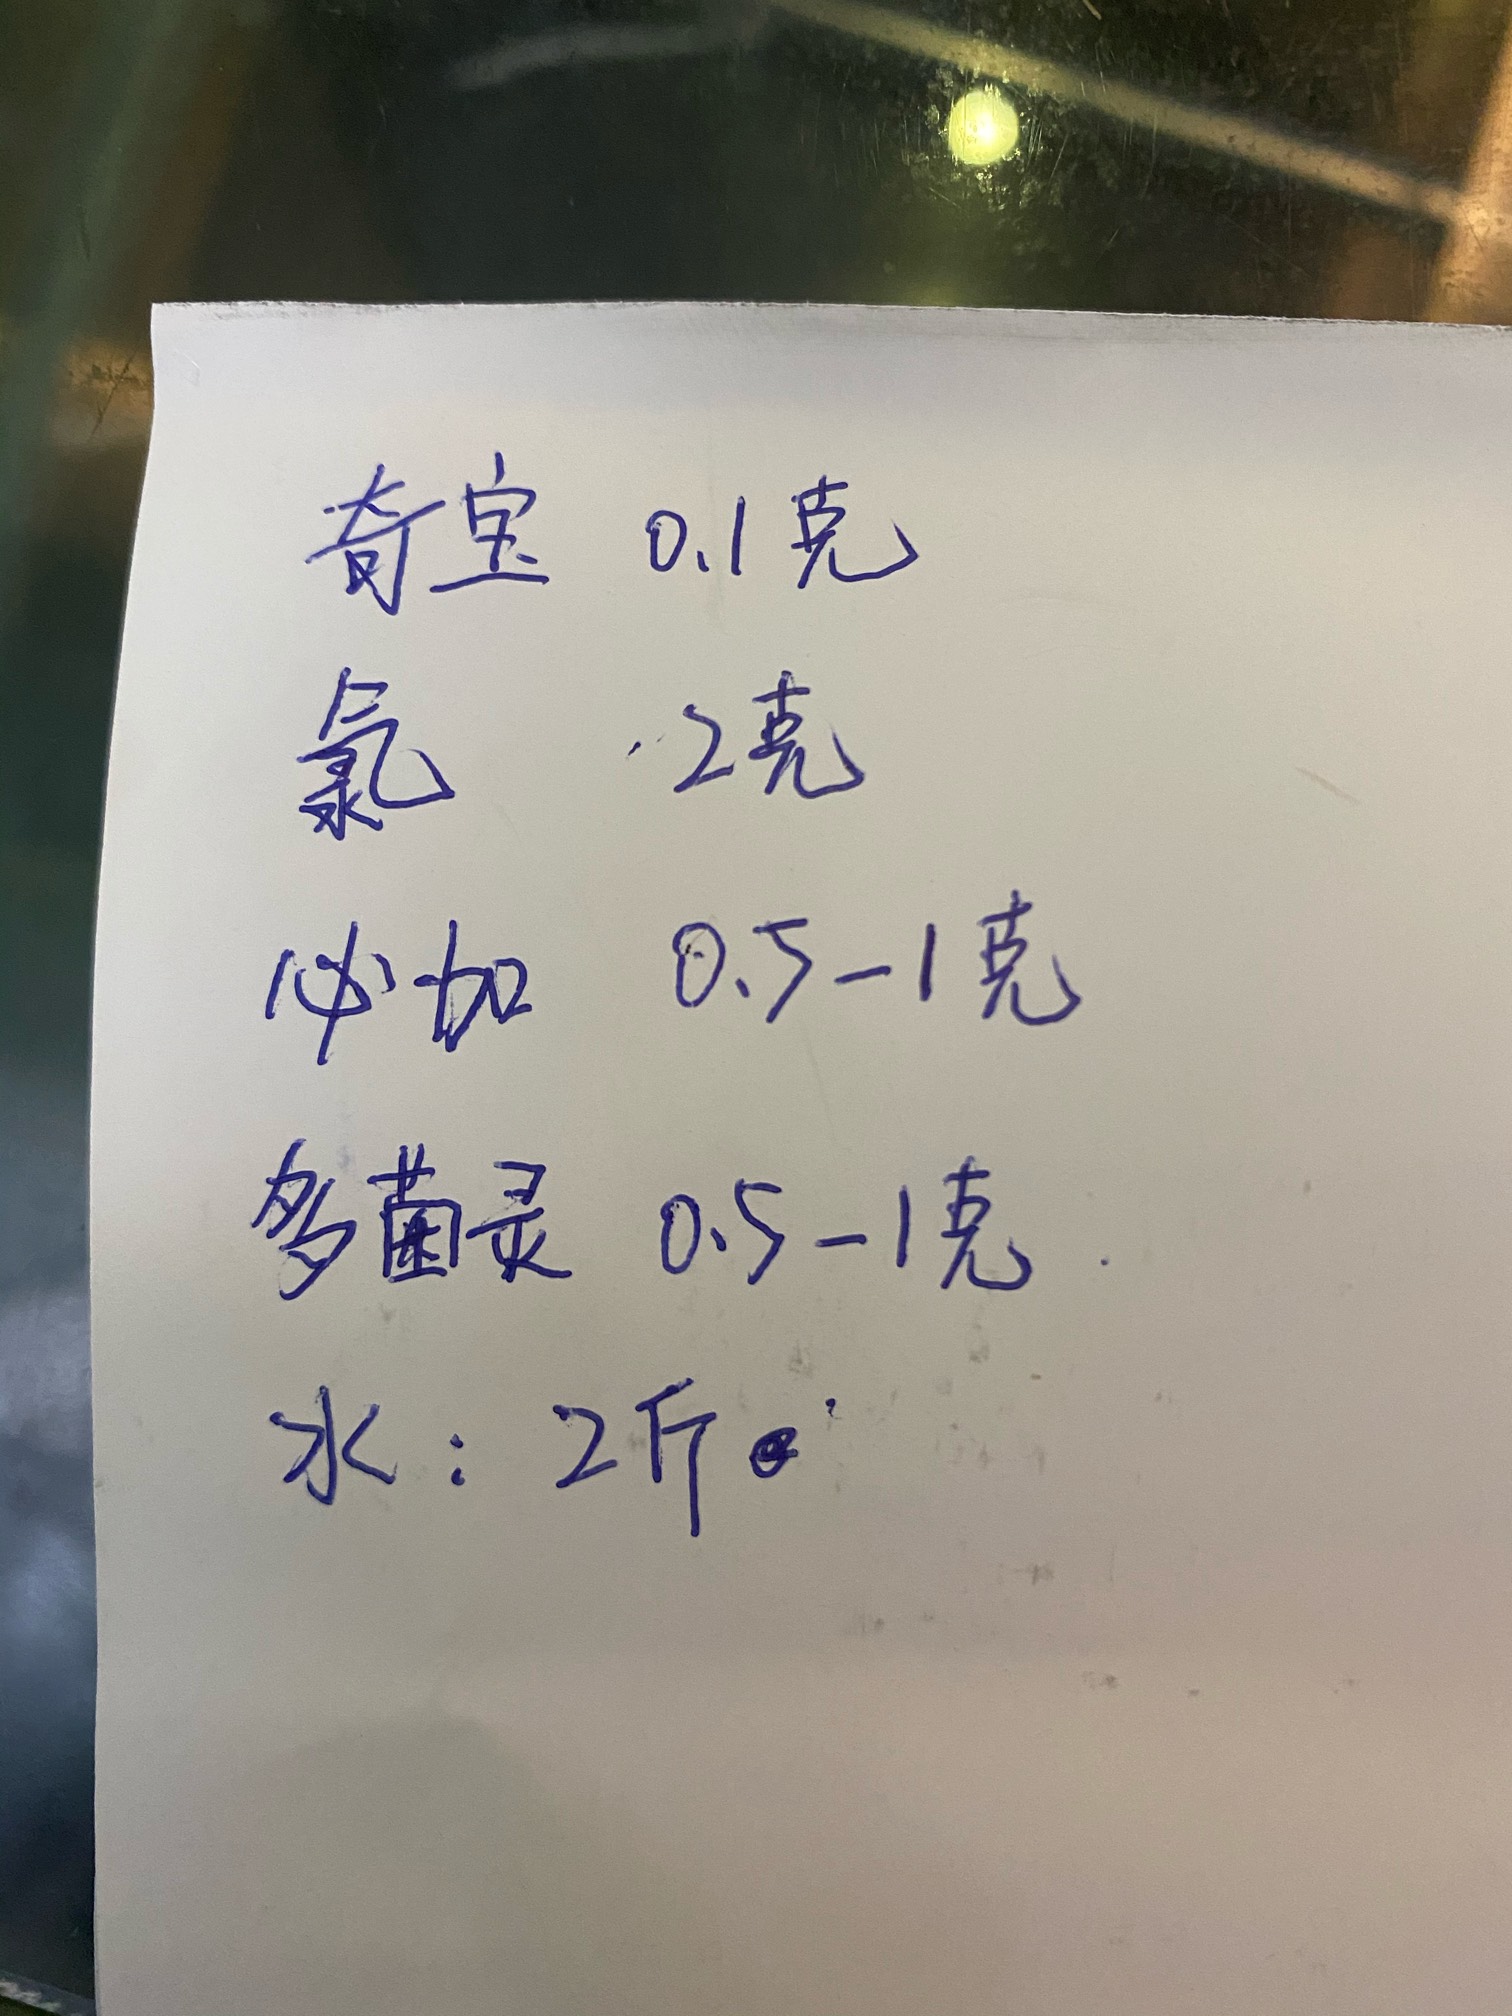 奇宝 0.1克
氯 2克
必加 0.5-1克
多菌灵 0.5-1克
水：2斤